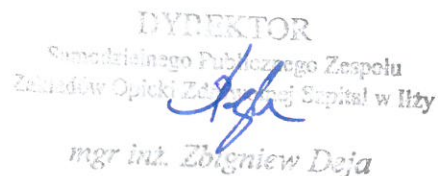 DYREKTOR
Samodzielnego Publicznego Zespołu
Zakładów Opieki Zdrowotnej Szpital w Iłży
mgr inż. Zbigniew Deja